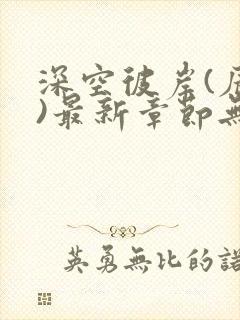 深空彼岸(
)最新章節無
英勇無比的諾